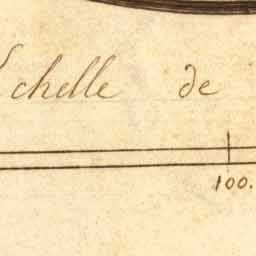 Echelle de
100.